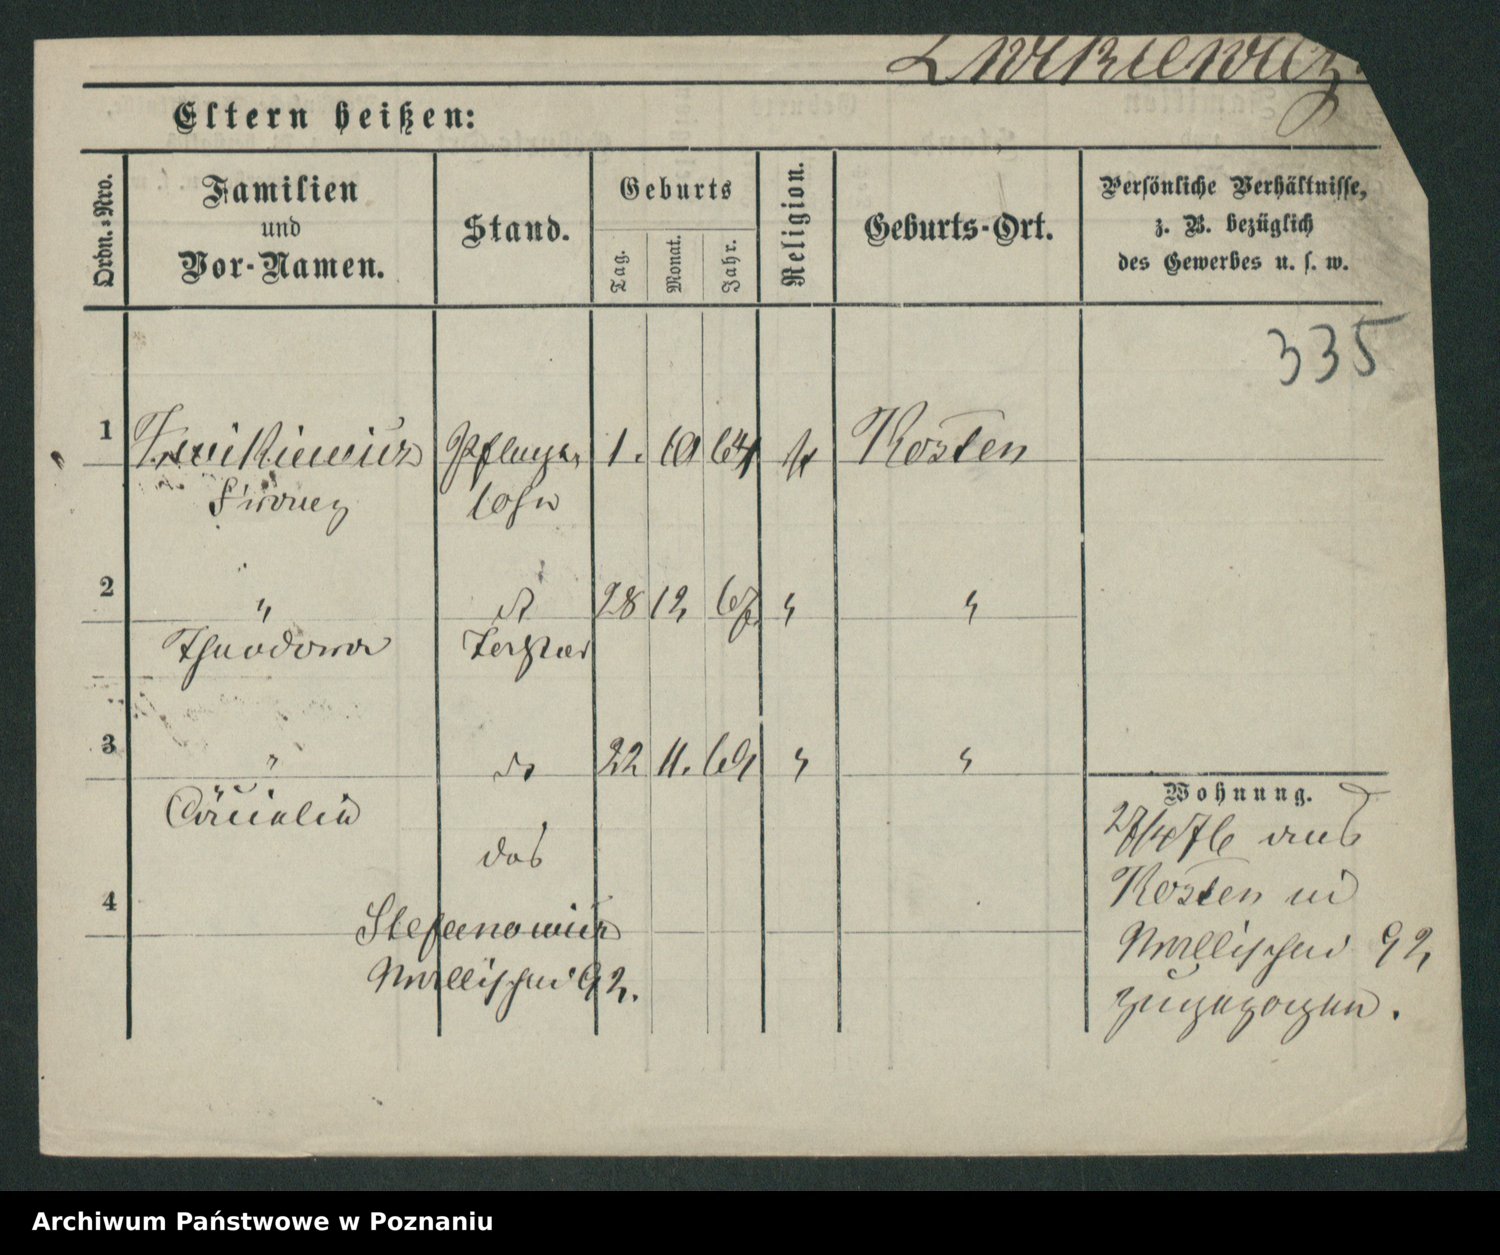 Eltern heißen:
Ordn.-Nro.
Familien
und
Vor-Namen.
Stand.
Geburts
Tag.
Monat.
Jahr.
Religion.
Geburts-Ort.
Persönliche Verhältnisse,
z. B. bezüglich
des Gewerbes u. s. w.
335
1 Zwikiewicz Pflege 1. 10 64 k Kosten
sohn
2 " d 28 12 67. " "
Theodora Tochter
3 " do 22 11. 69 " "
Cäcielia
des
4
Stefanowicz
Wallischei 92.
Wohnung.
27/4 76 aus
Kosten in
Wallischei 92
zugezogen.
Archiwum Państwowe w Poznaniu